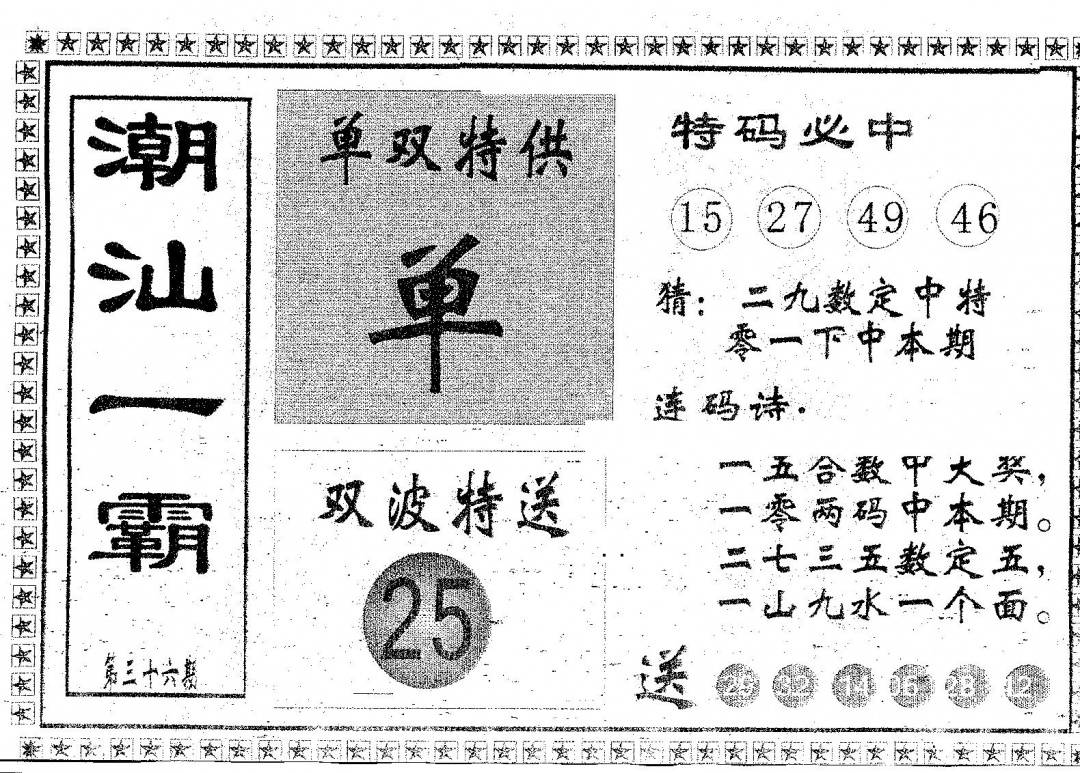 潮汕一霸
第三十六期
单双特供
单
双波特送
25
特码必中
15 27 49 46
猜：二九数定中特
零一下中本期
连码诗.
一五合数中大奖，
一零两码中本期。
二七三五数定五，
一山九水一个面。
送 32 14 06 28 12